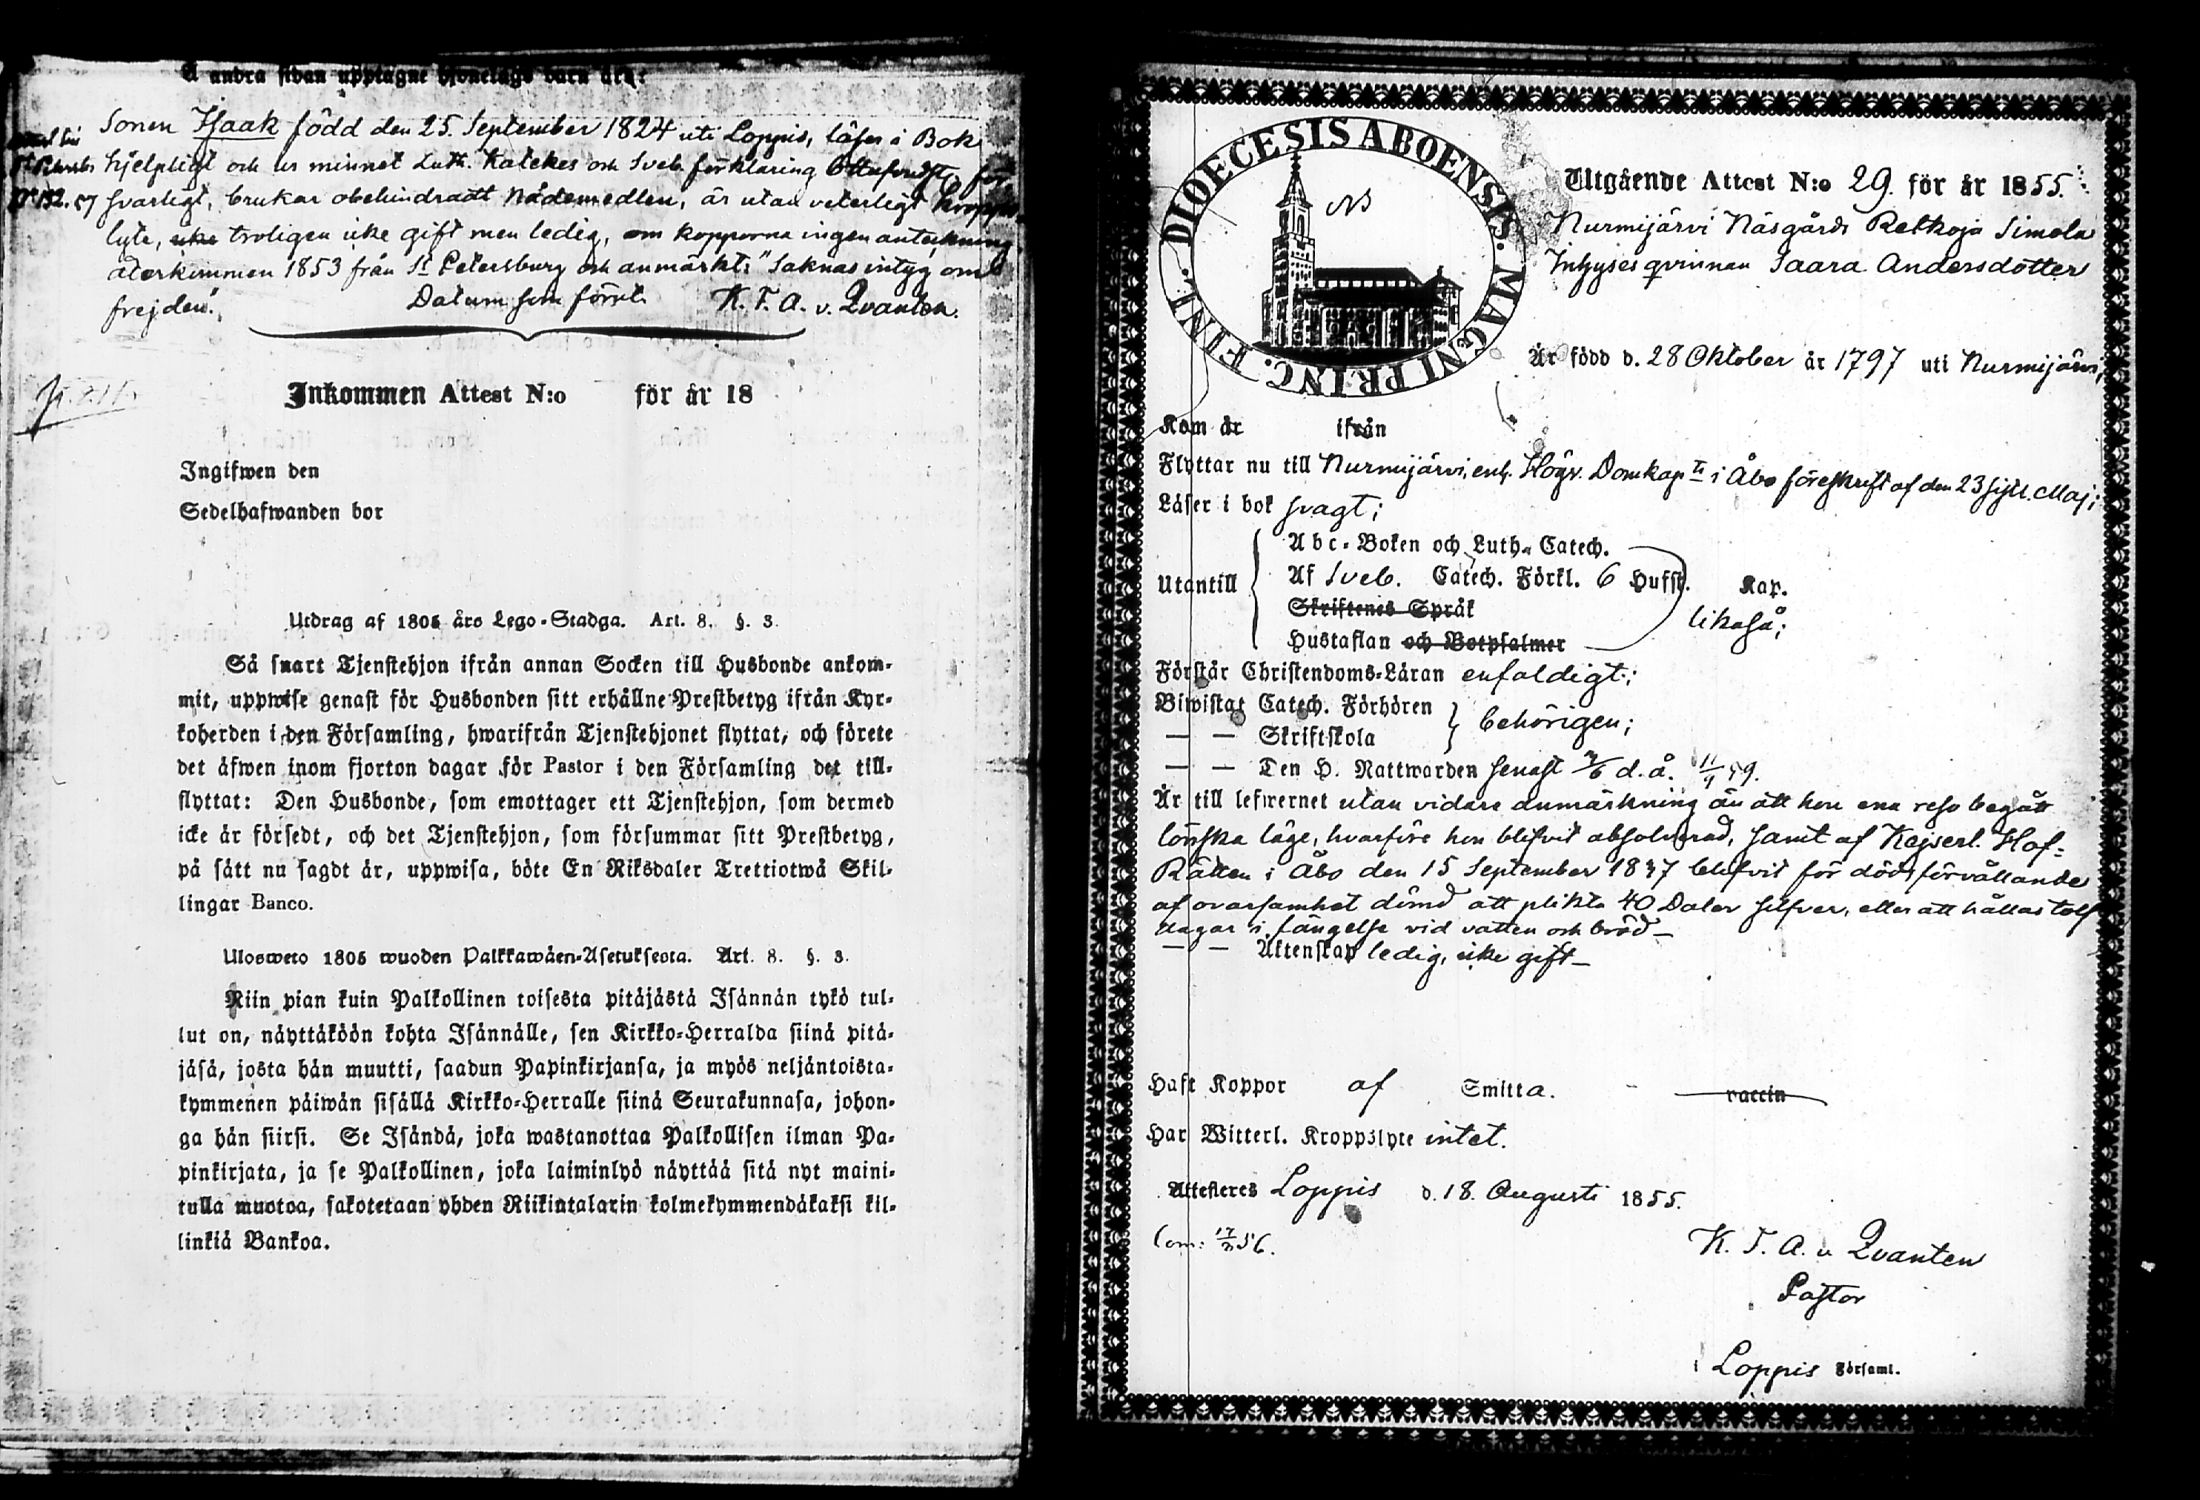 å andra sidan upptagne hjonelags barn äro:
Sonen Isaak född den 25. September 1824 uti Loppis, läser i Bok
hjelpligt och ur minnet Luth. Katekes och Sveb. förklaring
No 192. 57 svarligt, brukar obehindradt Nådemedlen, är utan veterligt kropps
lyte, icke troligen icke gift men ledig, om kopporna ingen anteckning
återkommen 1853 från St Petersburg och anmärkt: "saknas intyg om
frejden". Datum som förut. K. T. A. v. Qvanten.
Inkommen Attest N:o för år 18
Ingifwen den
Sedelhafwanden bor
Utdrag af 1805 års Lego-Stadga. Art. 8. §. 3.
Så snart Tjenstehjon ifrån annan Socken till Husbonde ankom-
mit, uppwise genast för Husbonden sitt erhållne Prestbetyg ifrån Kyr-
koherden i den Församling, hwarifrån Tjenstehjonet flyttat, och förete
det äfwen inom fjorton dagar för Pastor i den Församling det till-
flyttat: Den Husbonde, som emottager ett Tjenstehjon, som dermed
icke är försedt, och det Tjenstehjon, som försummar sitt Prestbetyg,
på sätt nu sagdt är, uppwisa, böte En Riksdaler Trettiotwå Skil-
lingar Banco.
Ulosweto 1805 wuoden Palkkawäen-Asetuksesta. Art. 8. §. 3.
Niin pian kuin Palkollinen toisesta pitäjästä Isännän tykö tul-
lut on, näyttäköön kohta Isännälle, sen Kirkko-Herralda siinä pitä-
jäsä, josta hän muutti, saadun Papinkirjansa, ja myös neljäntoista-
kymmenen päiwän sisällä Kirkko-Herralle siinä Seurakunnasa, johon-
ga hän siirsi. Se Isändä, joka wastanottaa Palkollisen ilman Pa-
pinkirjata, ja se Palkollinen, joka laiminlyö näyttää sitä nyt maini-
tulla muotoa, sakotetaan yhden Riikintalarin kolmekymmendäkaksi kil-
linkiä Bankoa.
DIOECESIS ABOENSIS. MAGNI PRINC. FINL.
NB
Utgående Attest N:o 29. för år 1855.
Nurmijärvi Näsgårds Retkoja Simola
Inhyses qvinnan Saara Andersdotter
Är född d. 28 Oktober år 1797 uti Nurmijärvi;
Kom år ifrån
Flyttar nu till Nurmijärvi, enl. Högv. Domkap. i Åbo föreskrift af den 23 sistl. Maj;
Läser i bok svagt;
Abc-Boken och Luth. Catech.
Utantill Af Sveb. Catech. Förkl. 6 Hufst. Kap.
Skriftenes Språk likaså;
Hustaflan och Botpsalmer
Förstår Christendoms-Läran enfaldigt;
Biwistat Catech. Förhören
— — Skriftskola behörigen;
— — Den H. Nattwarden senast d. å.
Är till lefwernet utan vidare anmärkning än att hon ena resa begått
lönska läge, hvarföre hon blifvit absolverad, samt af Kejserl. Hof-
Rätten i Åbo den 15 September 1837 blifvit för dödsförvållande
af ovarsamhet dömd att plikta 40 Daler silfver, eller att hållas tolf
dagar i fängelse vid vatten och bröd —
— — Äktenskap ledig, icke gift —
Haft Koppor af Smitta. vaccin
Har Witterl. Kroppslyte intet.
Attesteres Loppis d. 18. Augusti 1855.
K. T. A. v. Qvanten
Pastor
i Loppis Församl.